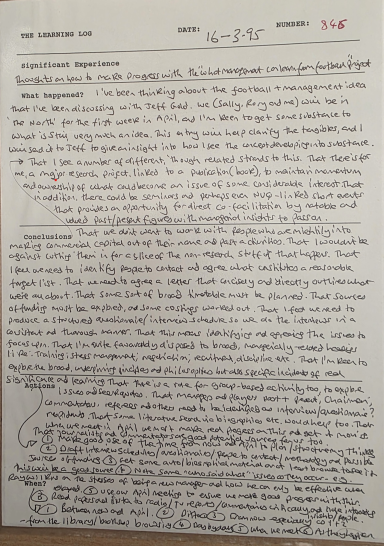 THE LEARNING LOG DATE: 16-3-95 NUMBER: 845
Significant Experience
Thoughts on how to make progress with the "What management can learn from football" project
What happened? I've been thinking about the football + management idea
that I've been discussing with Jeff Gold. We (Sally, Rory and me) will be in
'the North' for the first week in April, and I'm keen to get some substance to
what is still very much an idea. This entry will help clarify the tangibles, and I
will send it to Jeff to give an insight into how I see the concept developing into substance.
→ That I see a number of different, though related strands to this. That there is for
me, a major research project, linked to a publication (book), to maintain momentum
and ownership of what could become an issue of some considerable interest. That
in addition, there could be seminars and perhaps even linked short events
that provides an opportunity for direct co-facilitation by notable and
valued past/present figures with managerial insights to pass on.
Conclusions That we don't want to work with people who are mightily into
making commercial capital out of their name and past achievements. That I wouldn't be
against cutting them in for a slice of the non-research stuff if that happens. That
I feel we need to identify people to contact and agree what constitutes a reasonable
target list. That we need to agree a letter that concisely and directly outlines what
we're about. That some sort of broad timetable must be planned. That sources
of funding must be explored, and some costings worked out. That I feel we need to
produce a structured questionnaire/interview schedule so we do the interviews in a
consistent and thorough manner. That this means identifying and agreeing the issues to
focus upon. That I'm quite favourably disposed to broad, managerially-related headings
like: Training, stress management, negotiation, recruitment, discipline etc. That I'm keen to
explore the broad, underpinning principles and philosophies but also specific incidents of real
significance and learning. That there is a role for group-based activity too, to explore
issues and hear quotes. That managers and players past + present, Chairmen,
Actions commentators, referees and others need to be identified as interview/questionnaire?
respondents. That some literature search in biographies etc. would help too. That
when we meet in April we must make real progress on this
① Make good use of the time from now and April to plan/structure my thinking
② Draft interview schedule/questionnaire/people to contact
sources of funding ③ Get some auto/biographical material or at least browse to see if
This will be a good source ④ Note some names and what 'issues' they occur e.g.
Ray Wilkins on the stresses of being a new manager and how we can only be effective when
relaxed. ⑤ Use our April meeting to ensure we make good progress with this
⑥ Read papers and listen to radio/TV reports/commentaries with a curiously more inquisitive
When? ① Between now and April. ② Ditto ③ From now especially
from the library/bookshop browsing ④ Day by day ⑤ When we meet ⑥ As they happen